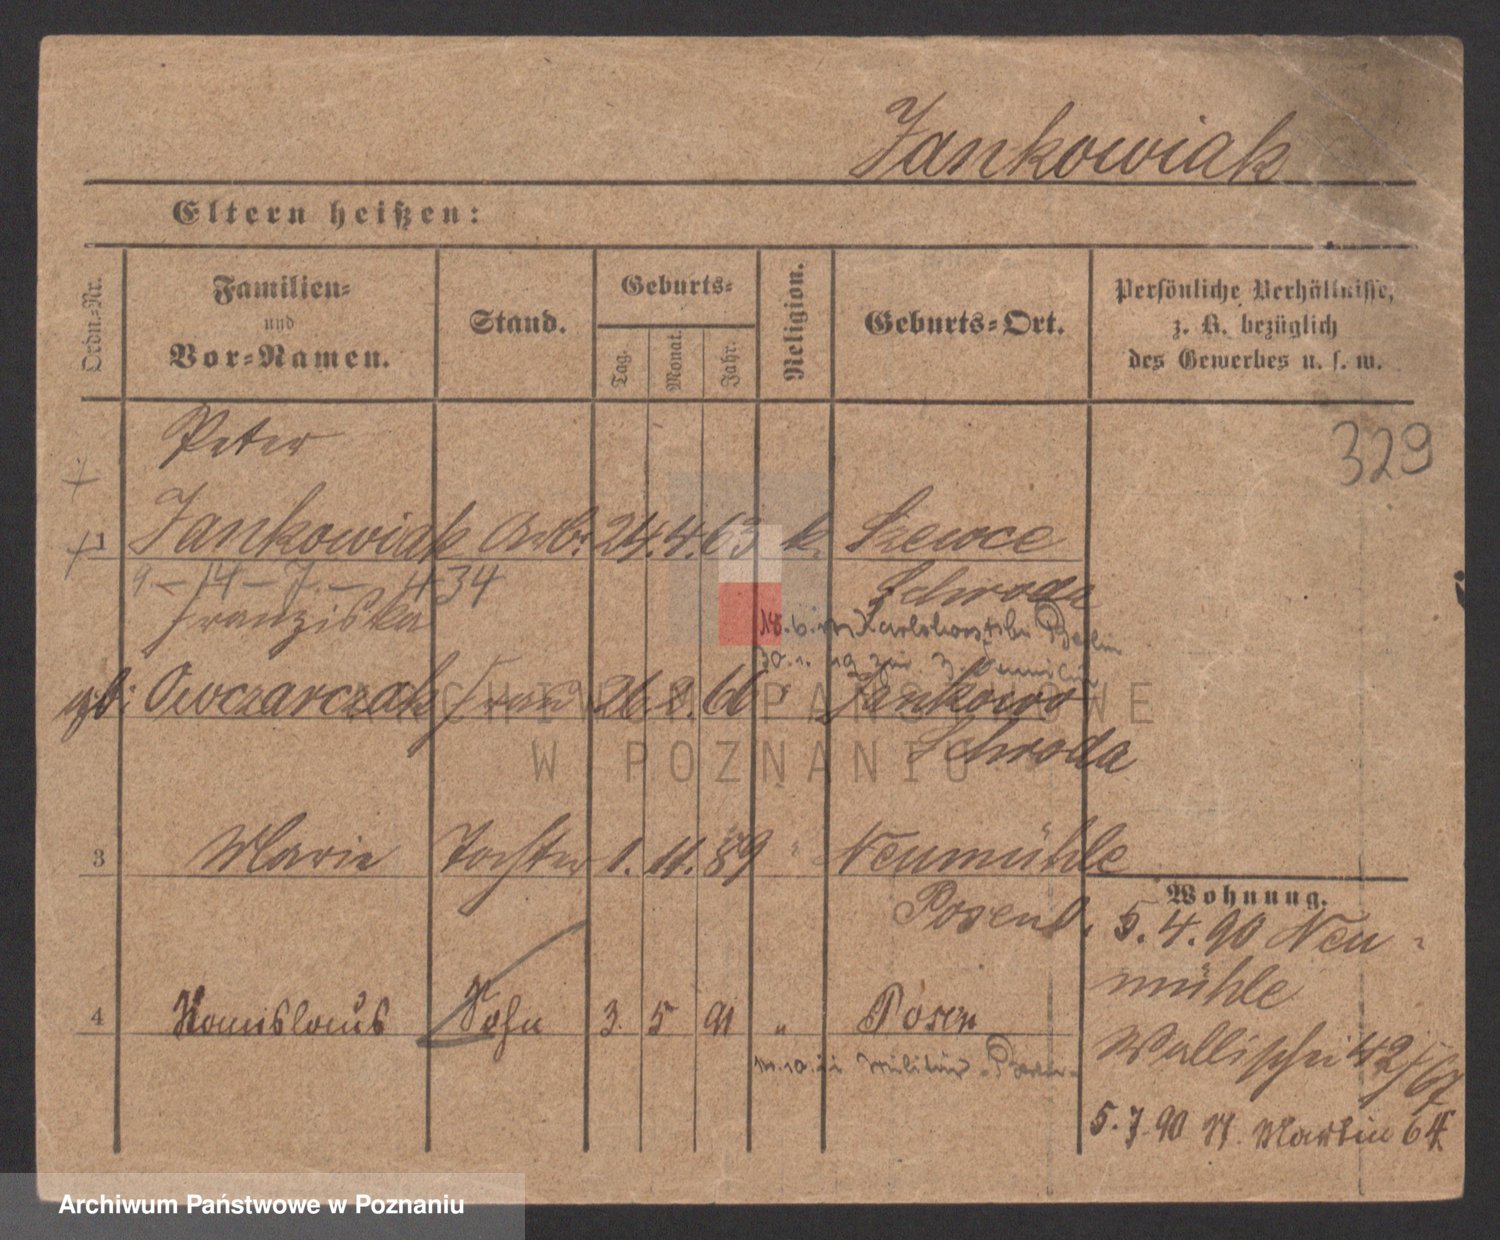 Jankowiak
Eltern heißen:
Ordn.-Nr.
Familien-
und
Vor-Namen.
Stand.
Geburts-
Tag.
Monat.
Jahr.
Religion.
Geburts-Ort.
Persönliche Verhältnisse,
z. B. bezüglich
des Gewerbes u. s. w.
329
Peter
1 Jankowiak Arb. 24. 4. 63 k. Szewce
9 – 14 – 7 – 434
Schroda
Franziska
18.6. Karlshorst bei Berlin
30.1.19 zur
gb: Owczarczak Frau 26 2. 66 " Jankowo
Schroda
3 Marie Tochter 1. 11. 89 " Neumühle
Posen
Wohnung.
5.4.90 Neu-
mühle
4 Sohn 3. 5 91 " Posen
Wallischei 42/67
Militär Berlin
5.7.90 Martin 64
ARCHIWUM PAŃSTWOWE
W POZNANIU
Archiwum Państwowe w Poznaniu